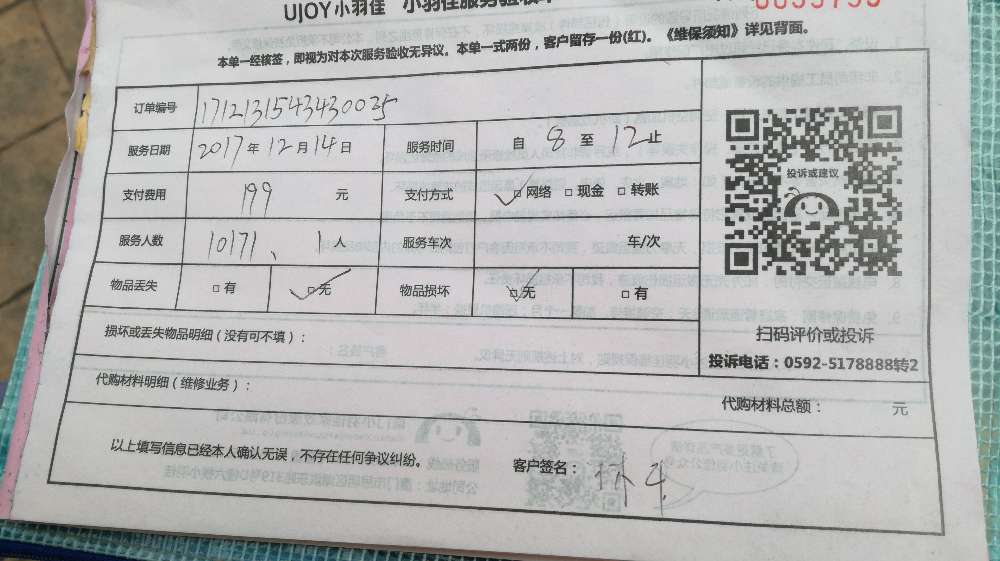 UJOY小羽佳 小羽佳服务验收单
本单一经核签，即视为对本次服务验收无异议。本单一式两份，客户留存一份(红)。《维保须知》详见背面。
订单编号 171213154343430035
服务日期 2017年12月14日 服务时间 自 8 至 12 止
支付费用 199 元 支付方式 □网络 □现金 □转账
服务人数 10171、1人 服务车次 车/次
物品丢失 □有 □无 物品损坏 □无 □有
投诉或建议
扫码评价或投诉
投诉电话：0592-5178888转2
损坏或丢失物品明细（没有可不填）：
代购材料明细（维修业务）： 代购材料总额： 元
以上填写信息已经本人确认无误，不存在任何争议纠纷。 客户签名：